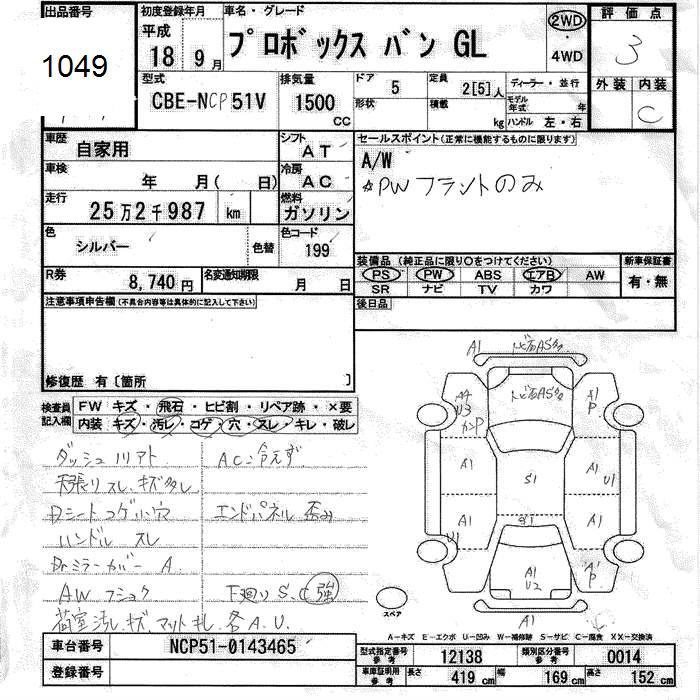 出品番号
1049
初度登録年月
平成
18 9月
車名・グレード
プロボックス バン GL
2WD
・
4WD
評価点
3
外装 内装
C
型式
CBE-NCP51V
排気量
1500
CC
ドア 5
形状
定員 2[5]人
積載 kg
ディーラー・並行
モデル年式 年
ハンドル 左・右
車歴 自家用
シフト AT
車検 年 月( 日)
冷房 AC
走行 25万2千987 km
燃料 ガソリン
色 シルバー 色替
色コード 199
R券 8,740円
名変通知期限 月 日
セールスポイント(正常に機能するものに限ります)
A/W
☆PW フラントのみ
装備品(純正品に限り○をつけてください)
新車保証書
PS PW ABS エアB AW
SR ナビ TV カワ
有・無
後日品
注意事項申告欄(不具合内容等は具体的に記入して下さい)
修復歴 有〔箇所 〕
検査員記入欄
FW キズ・飛石・ヒビ割・リペア跡・×要
内装 キズ・汚レ・コゲ・穴・スレ・キレ・破レ
ダッシュ ノリアト
AC:冷えず
天張リスレ、キズ多し
Dシートコゲ小穴
エンドパネル 歪み
ハンドル スレ
Drミラーカバー A
AW フショク
下廻りS、C強
荷室汚レ、キズ、マットキレ、各A.U.
A1
トビ石ASカケ
トビ石AS カケ
A4
U3
カンP
A1
P
A1
S1
A1
U1
A1
U1
S1
A1
A1
P
A1
U2
A1
スペア
A-キズ E-エクボ U-凹み W-補修跡 S-サビ C-腐食 XX-交換済
車台番号 NCP51-0143465
登録番号
型式指定番号 参考 12138
類別区分番号 参考 0014
車庫証明用 参考 長さ 419cm 幅 169cm 高さ 152cm